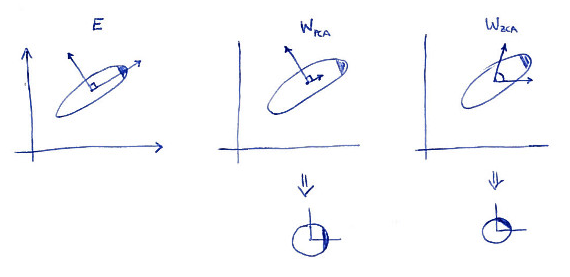 E
W_PCA
W_ZCA